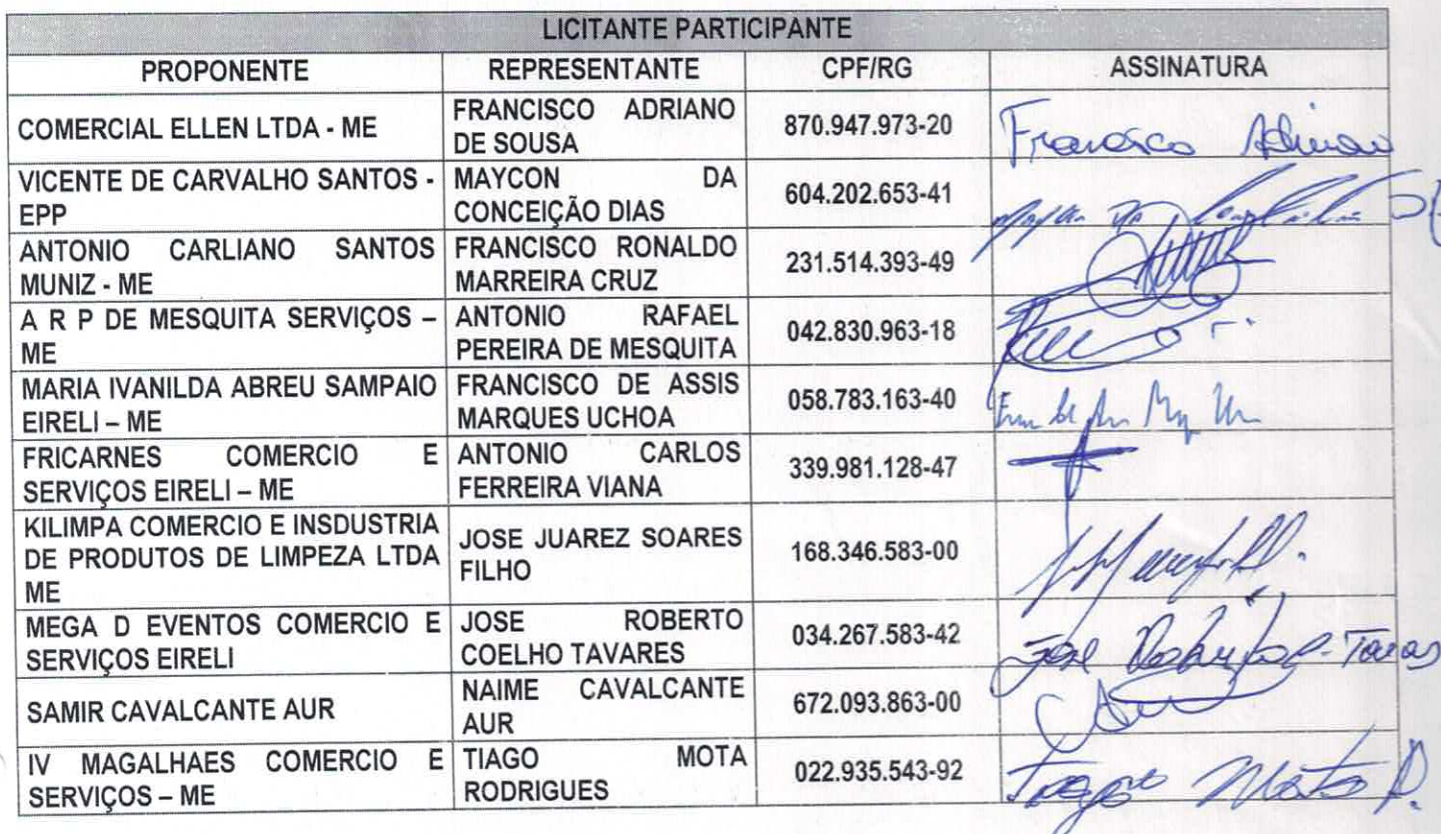 LICITANTE PARTICIPANTE
PROPONENTE REPRESENTANTE CPF/RG ASSINATURA
COMERCIAL ELLEN LTDA - ME
FRANCISCO ADRIANO
DE SOUSA
870.947.973-20
Francisco Adriano
VICENTE DE CARVALHO SANTOS -
EPP
MAYCON DA
CONCEIÇÃO DIAS
604.202.653-41
ANTONIO CARLIANO SANTOS
MUNIZ - ME
FRANCISCO RONALDO
MARREIRA CRUZ
231.514.393-49
A R P DE MESQUITA SERVIÇOS –
ME
ANTONIO RAFAEL
PEREIRA DE MESQUITA
042.830.963-18
MARIA IVANILDA ABREU SAMPAIO
EIRELI – ME
FRANCISCO DE ASSIS
MARQUES UCHOA
058.783.163-40
FRICARNES COMERCIO E
SERVIÇOS EIRELI – ME
ANTONIO CARLOS
FERREIRA VIANA
339.981.128-47
KILIMPA COMERCIO E INSDUSTRIA
DE PRODUTOS DE LIMPEZA LTDA
ME
JOSE JUAREZ SOARES
FILHO
168.346.583-00
MEGA D EVENTOS COMERCIO E
SERVIÇOS EIRELI
JOSE ROBERTO
COELHO TAVARES
034.267.583-42
José
SAMIR CAVALCANTE AUR
NAIME CAVALCANTE
AUR
672.093.863-00
IV MAGALHAES COMERCIO E
SERVIÇOS – ME
TIAGO MOTA
RODRIGUES
022.935.543-92
Tiago Mota R.